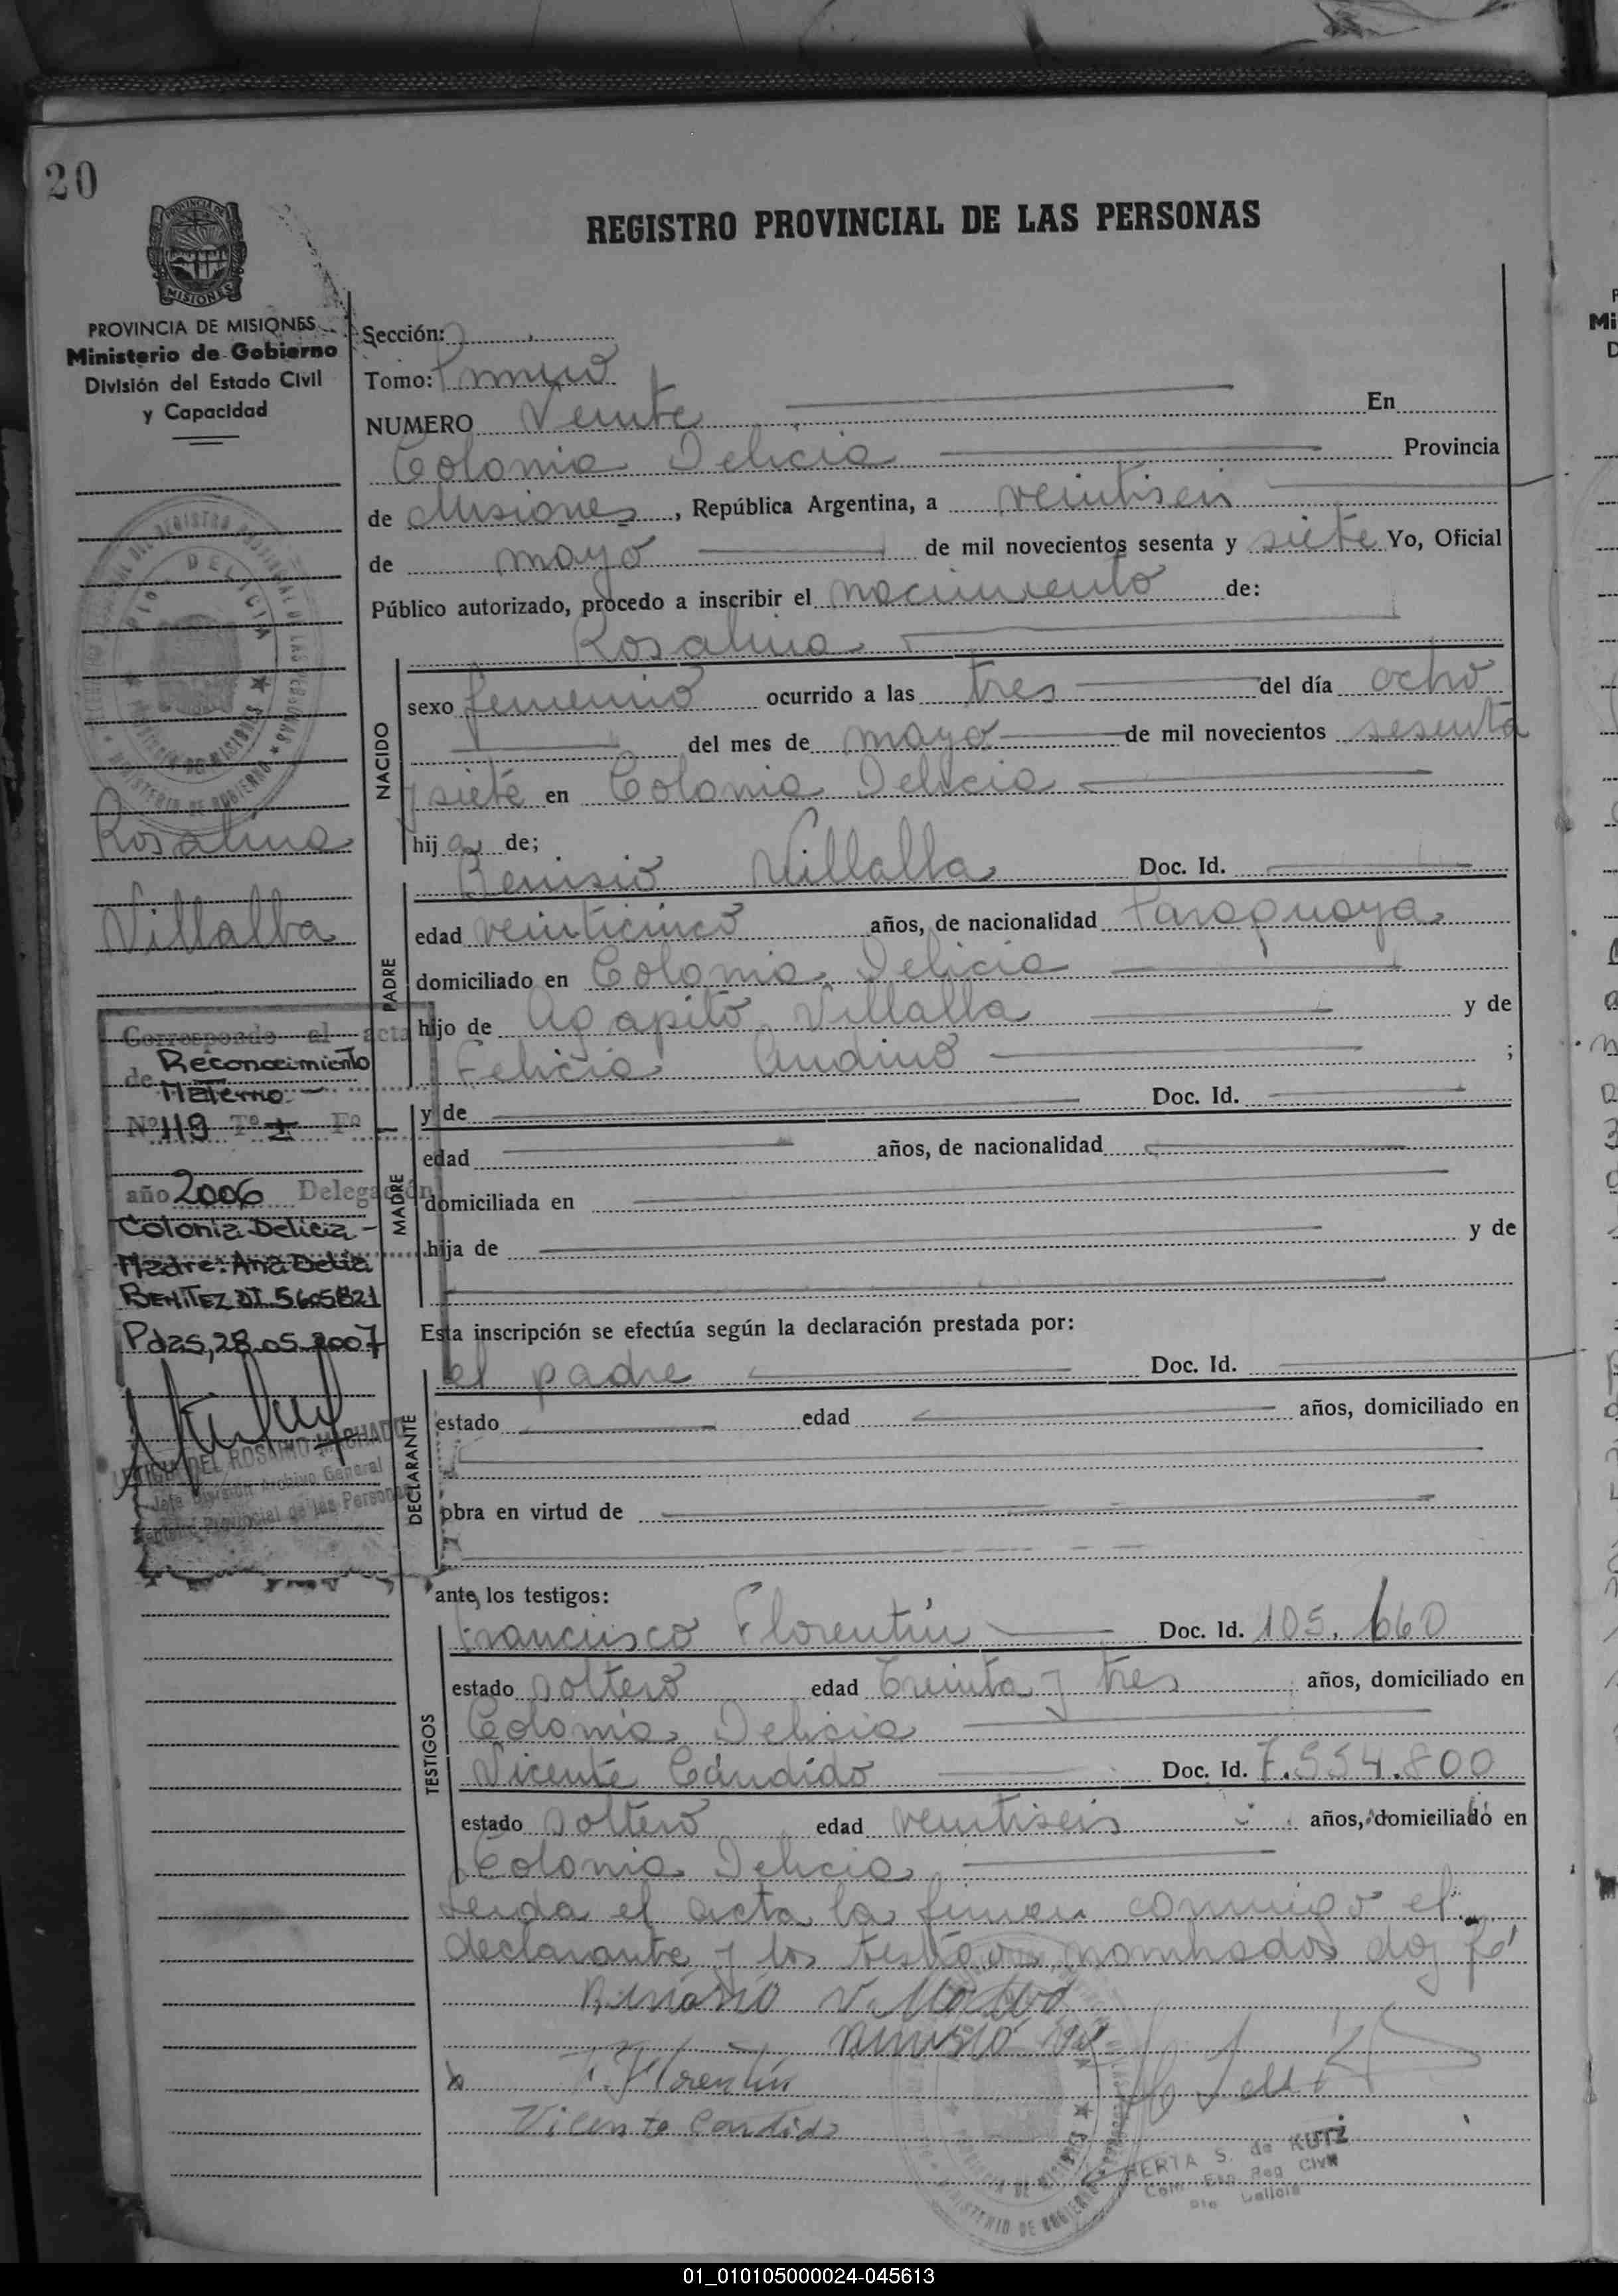 20
REGISTRO PROVINCIAL DE LAS PERSONAS
PROVINCIA DE
MISIONES
PROVINCIA DE MISIONES
Ministerio de Gobierno
División del Estado Civil
y Capacidad
Sección:
Tomo: Primero
NUMERO Veinte En
Colonia Delicia Provincia
de Misiones, República Argentina, a veintiseis
de mayo de mil novecientos sesenta y siete Yo, Oficial
Público autorizado, procedo a inscribir el nacimiento de:
Rosalina
NACIDO
sexo femenino ocurrido a las tres del día ocho
del mes de mayo de mil novecientos sesenta
y siete en Colonia Delicia
hija de;
Rosalina
Villalba
PADRE
Remisio Villalba Doc. Id.
edad veinticinco años, de nacionalidad Paraguaya
domiciliado en Colonia Delicia
hijo de Agapito Villalba y de
Felicia Andino ;
Corresponde al acta
de Reconocimiento
Materno -
Nº 119 Tº I Fº
año 2006 Delegación
Colonia Delicia -
Madre: Ana Delia
BENITEZ DI 5605821
Pdas, 28.05.2007
LETICIA DEL ROSARIO MACHADO
Jefe División Archivo General
Registro Provincial de las Personas
MADRE
y de Doc. Id.
edad años, de nacionalidad
domiciliada en
hija de y de
Esta inscripción se efectúa según la declaración prestada por:
DECLARANTE
el padre Doc. Id.
estado edad años, domiciliado en
obra en virtud de
ante los testigos:
TESTIGOS
Francisco Florentín Doc. Id. 105.660
estado soltero edad treinta y tres años, domiciliado en
Colonia Delicia
Vicente Cándido Doc. Id. 7.554.800
estado soltero edad veintiseis años, domiciliado en
Colonia Delicia
Leida el acta la firman conmigo el
declarante y los testigos nombrados doy fé
Remisio Villalba
Remisio
F. Florentín
Vicente Candido
HERTA S. de KUTZ
Reg Civil
Delicia
01_010105000024-045613